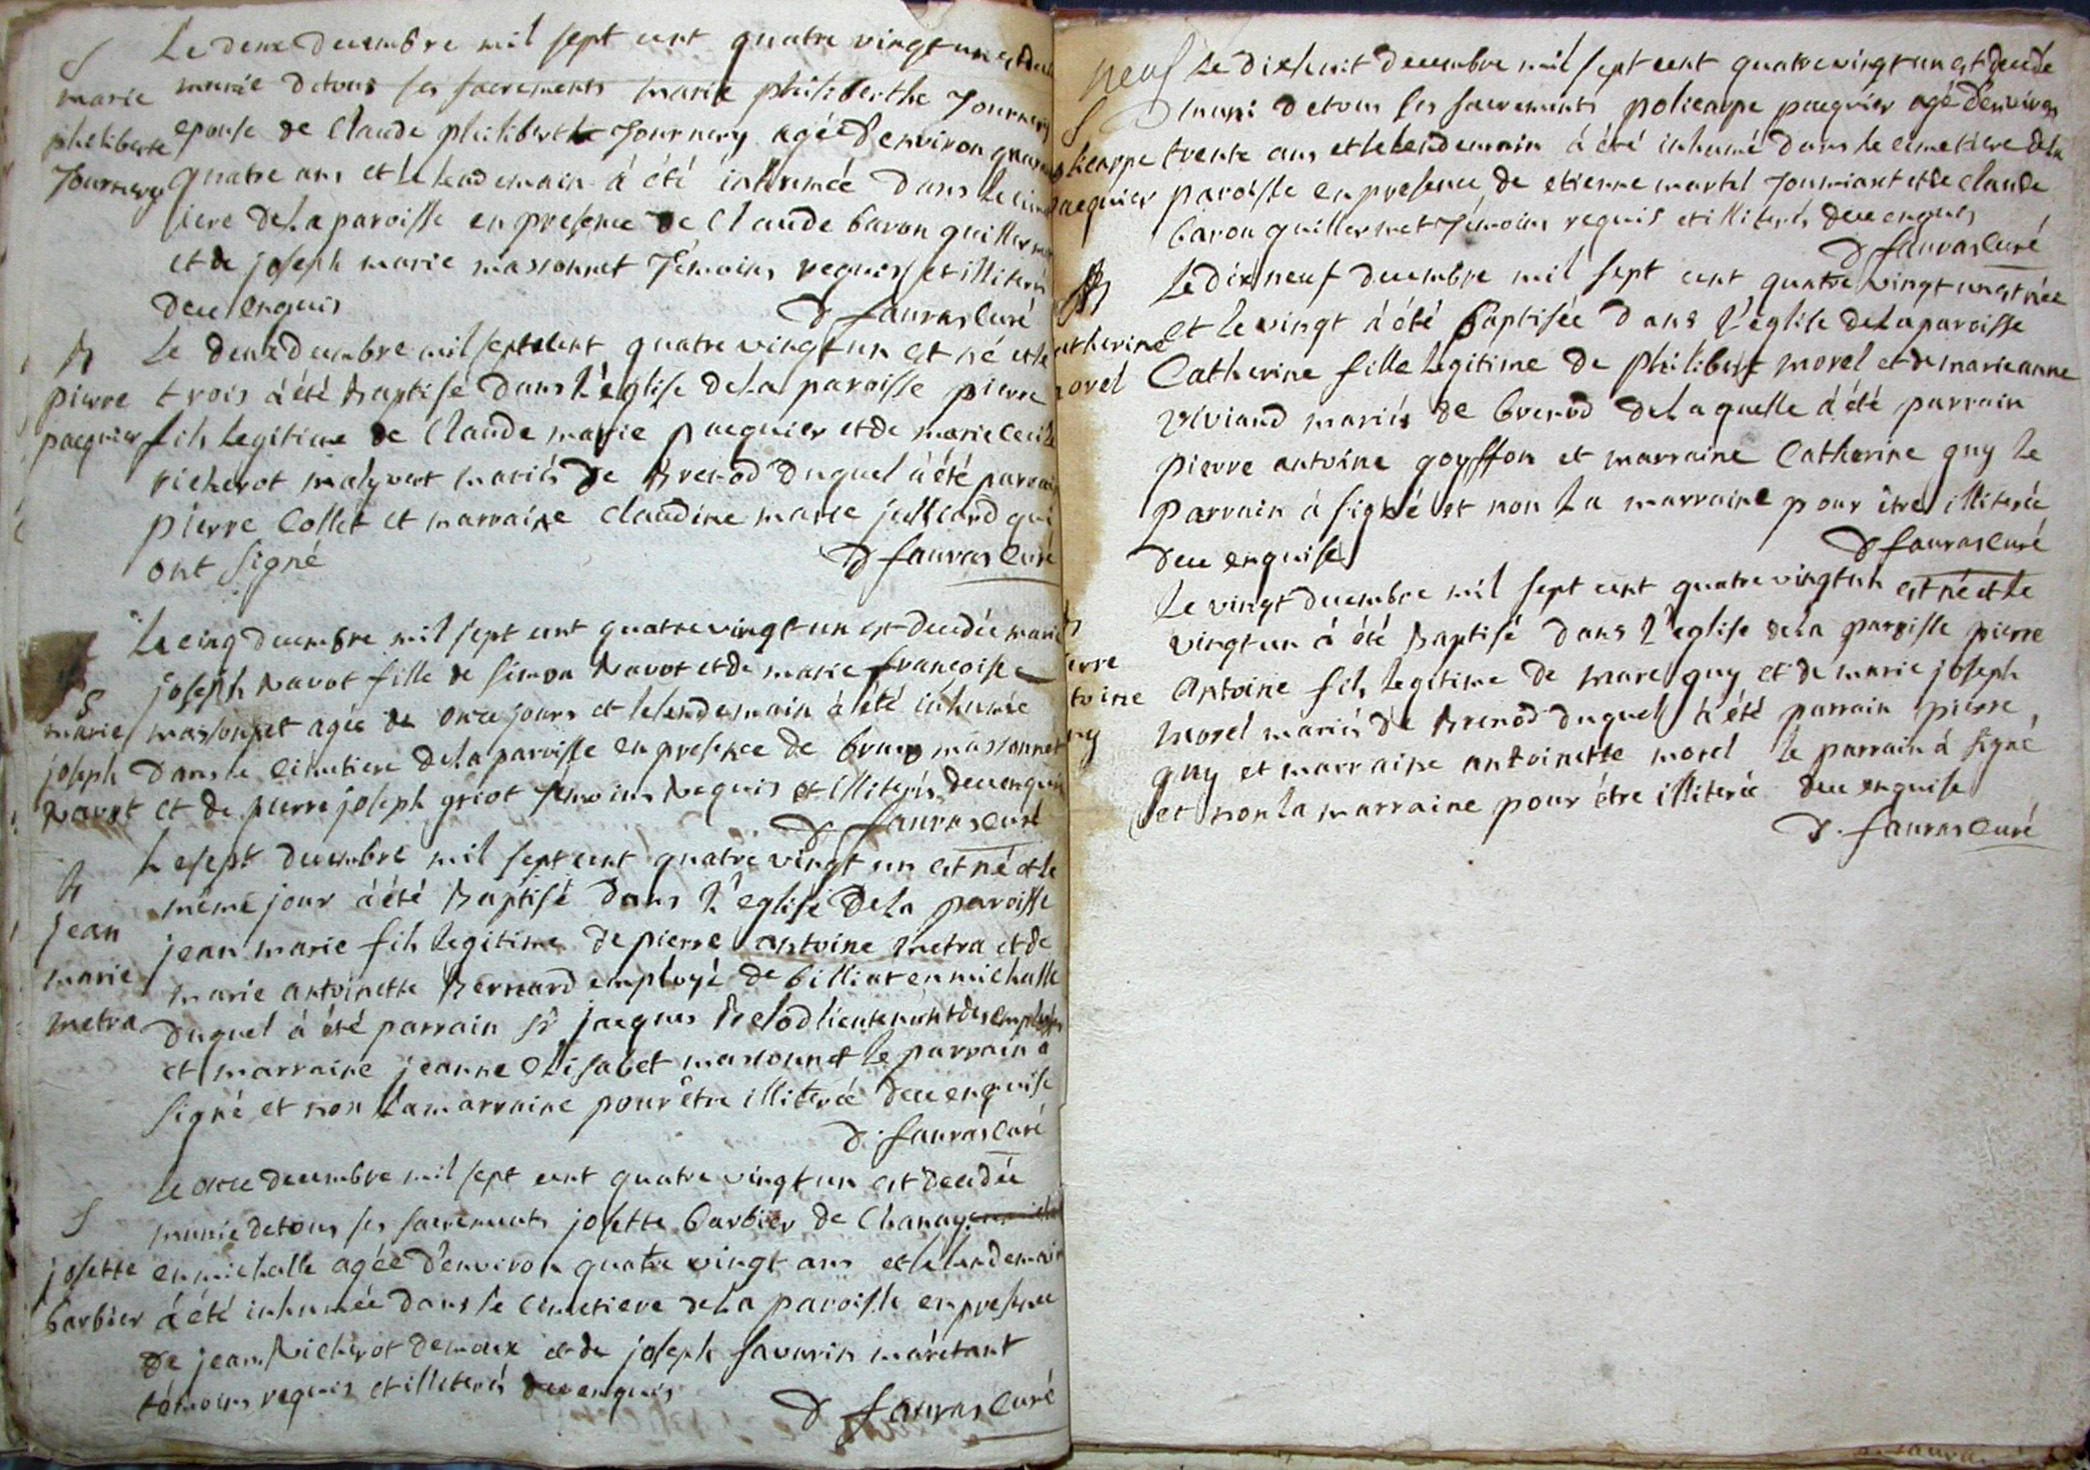 S
Le deux decembre mil sept cent quatre vingt un est
marie
philiberte
Tournery
munie de tous ses sacremens marie philiberthe Tournery
epouse de Claude philiberthe Tournery agée d'environ
quatre ans et le lendemain á été inhumée dans le cime
tiere de la paroisse en presence de Claude baron guillermet
et de joseph marie massonnet Témoins requis et illiterés
deue enquis
D fauras Curé
B
pierre
pacquier
Le deux decembre mil sept cent quatre vingt un est né et le
trois á été Baptisé dans l'église de la paroisse pierre
fils legitime de Claude marie pacquier et de marie Cecile
richerot malyvert mariés de Brenod duquel á été parrain
pierre Collet et marraine claudine marie julliard qui
ont signé
D fauras Curé
S
marie
joseph
Navot
Le cinq decembre mil sept cent quatre vingt un est decedée marie
joseph Navot fille de simon Navot et de marie francoise
massonnet agée de onze jours et le lendemain á été inhumée
dans le cimetiere de la paroisse en presence de bruno massonnet
et de pierre joseph griot témoins Requis et illiterés deue enquis
D fauras Curé
B
jean
marie
metra
Le sept decembre mil sept cent quatre vingt un est né et le
même jour á été Baptisé dans l'eglise de la paroisse
jean marie fils legitime de pierre antoine metra et de
marie antoinette Bernard employé de billiat en michalle
duquel á été parrain sr jacques Belod lieutenant des employés
et marraine jeanne Elisabet massonnet le parrain a
signé et non la marraine pour être illiterée deue enquise
D. fauras Curé
S
josette
barbier
Le onze decembre mil sept cent quatre vingt un est decedée
munie de tous ses sacrements josette barbier de Chanay
en michalle agée d'environ quatre vingt ans et le lendemain
á été inhumée dans le Cimetiere de la paroisse en presence
de jean Richerot demeux et de joseph savarin marétant
témoins requis et illiterés deue enquis
D fauras Curé
neuf
S
policarpe
pacquier
Le dixhuit decembre mil sept cent quatre vingt un est decedé
muni de tous ses sacrements policarpe pacquier agé d'environ
trente ans et le lendemain á été inhumé dans le cimetiere de la
paroisse en presence de etienne martel Tourniant et de claude
baron guillermet Témoins requis et illiterés deue enquis
D fauras Curé
B
catherine
morel
Le dix neuf decembre mil sept cent quatre vingt un est née
et le vingt á été Baptisée dans l'église de la paroisse
Catherine fille legitime de philibert morel et de marie anne
Viviand mariés de brenod de la quelle á été parrain
pierre antoine goyffon et marraine Catherine guy le
parrain á signé et non la marraine pour être illiterée
deue enquise
D fauras Curé
B
ierre
toine
uy
Le vingt decembre mil sept cent quatre vingt un est né et le
vingt un á été Baptisé dans l'eglise de la paroisse pierre
Antoine fils legitime de marc guy et de marie joseph
Morel mariés de Brenod duquel á été parrain pierre
guy et marraine antoinette morel le parrain á signé
et non la marraine pour être illiterée deue enquise
D. fauras Curé